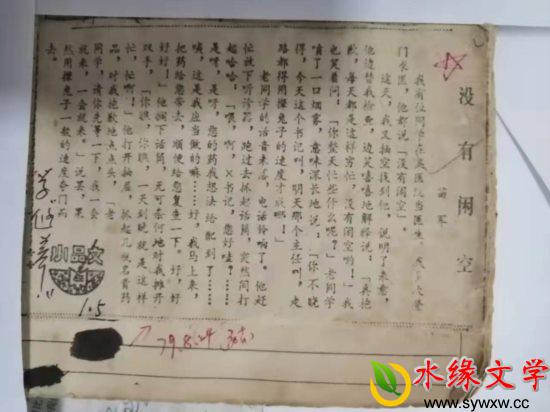 没有闲空
苗军
我有位同学在某医院当医生，
门求医，他都说「没有闲空」。
这天，我又抽空找到他，说明了来意，
他边替我检查，边笑嘻嘻地解释说：「真抱
歉，每天都是这样穷忙，没有闲空哟！」我
也笑着问：「你整天忙些什么呢？」老同学
喷了一口烟雾，意味深长地说：「你不晓
得，今天这个书记叫，明天那个主任叫，走
路都得用撵兔子的速度才成哪！」
老同学的话音未落，电话铃响了。他赶
忙放下听诊器，跑过去抓起话筒，突然间打
起哈哈：「喂，啊，×书记，您好哇？……
噢，这是我应当做的嘛……好，我马上来，
噢，是……是，您的药我想法给配到了……
把药给您带去，顺便给您复查一下。好，好
好好！」他搁下话筒，无可奈何地对我摊开
双手，「你瞧，你瞧，一天到晚就是这样
忙，忙啊！」他打开抽屉，抓起几瓶名贵药
品，对我抱歉地点点头，「老
同学，请你先等一下，我一会
就来，一会就来。」说罢，果
然用撵兔子一般的速度夺门而
去。
小品文
1.5
79.8.24
水缘文学
www.sywxw.cc